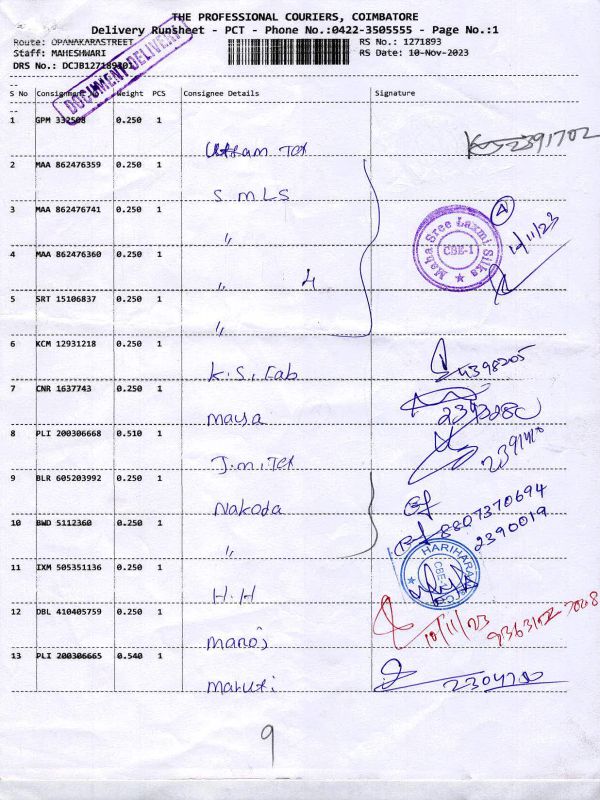 THE PROFESSIONAL COURIERS, COIMBATORE
Delivery Runsheet - PCT - Phone No.:0422-3505555 - Page No.:1
Route: OPANAKARASTREET RS No.: 1271893
Staff: MAHESHWARI RS Date: 10-Nov-2023
DRS No.: DCJB127189301
DOCUMENT DELIVERY
S No Consignment Weight PCS Consignee Details Signature
1 GPM 332508 0.250 1
Uttham Tex 2391702
2 MAA 862476359 0.250 1
S M L S
3 MAA 862476741 0.250 1
"
Maha Sree Laxmi Silks
CBE-1
A
10/11/23
4 MAA 862476360 0.250 1
" 4
5 SRT 15106837 0.250 1
"
6 KCM 12931218 0.250 1
K.S. Fab 4398205
7 CNR 1637743 0.250 1
Maya
8 PLI 200306668 0.510 1
J.M. Tex
9 BLR 605203992 0.250 1
Nakoda
8807370694
2390019
10 BWD 5112360 0.250 1
"
HARIHARA
CBE-1
11 IXM 505351136 0.250 1
H.H
12 DBL 410405759 0.250 1
Manoj 10/11/23
13 PLI 200306665 0.540 1
Maruti
9